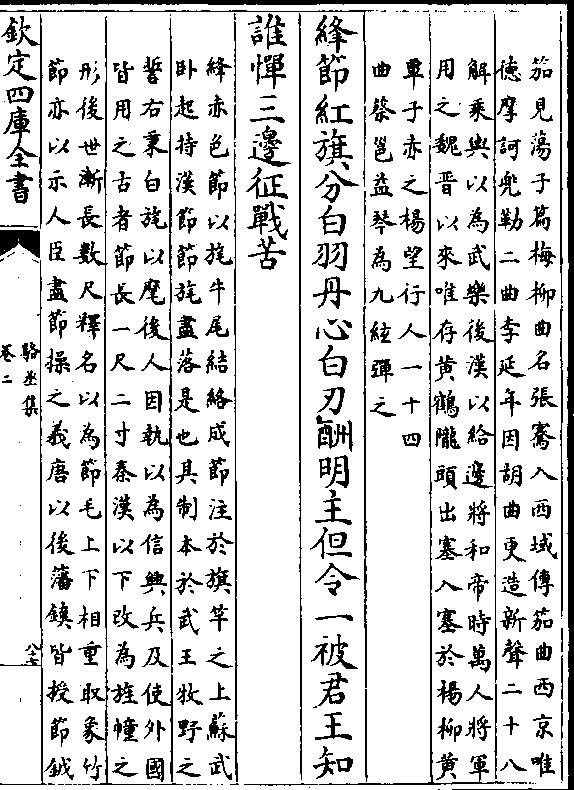 笳見蕩子篇梅柳曲名張騫入西域傳笳曲西京唯
德摩訶兜勒二曲李延年因胡曲更造新聲二十八
解乘輿以為武樂後漢以給邊將和帝時萬人將軍
用之魏晉以來唯存黃鶴隴頭出塞入塞於楊柳黃
覃子亦之楊望行人一十四
曲蔡邕益琴為九絃彈之
絳節紅旗分白羽丹心白刃酬明主但令一被君王知
誰憚三邊征戰苦
絳赤色節以旄牛尾結絡成節注於旗竿之上蘇武
卧起持漢節節旄盡落是也其制本於武王牧野之
誓右秉白旄以麾後人因執以為信興兵及使外國
皆用之古者節長一尺二寸秦漢以下改為旌幢之
形後世漸長數尺釋名以為節毛上下相重取象竹
節亦以示人臣盡節操之義唐以後藩鎮皆授節鉞
欽定四庫全書
駱丞集
卷二